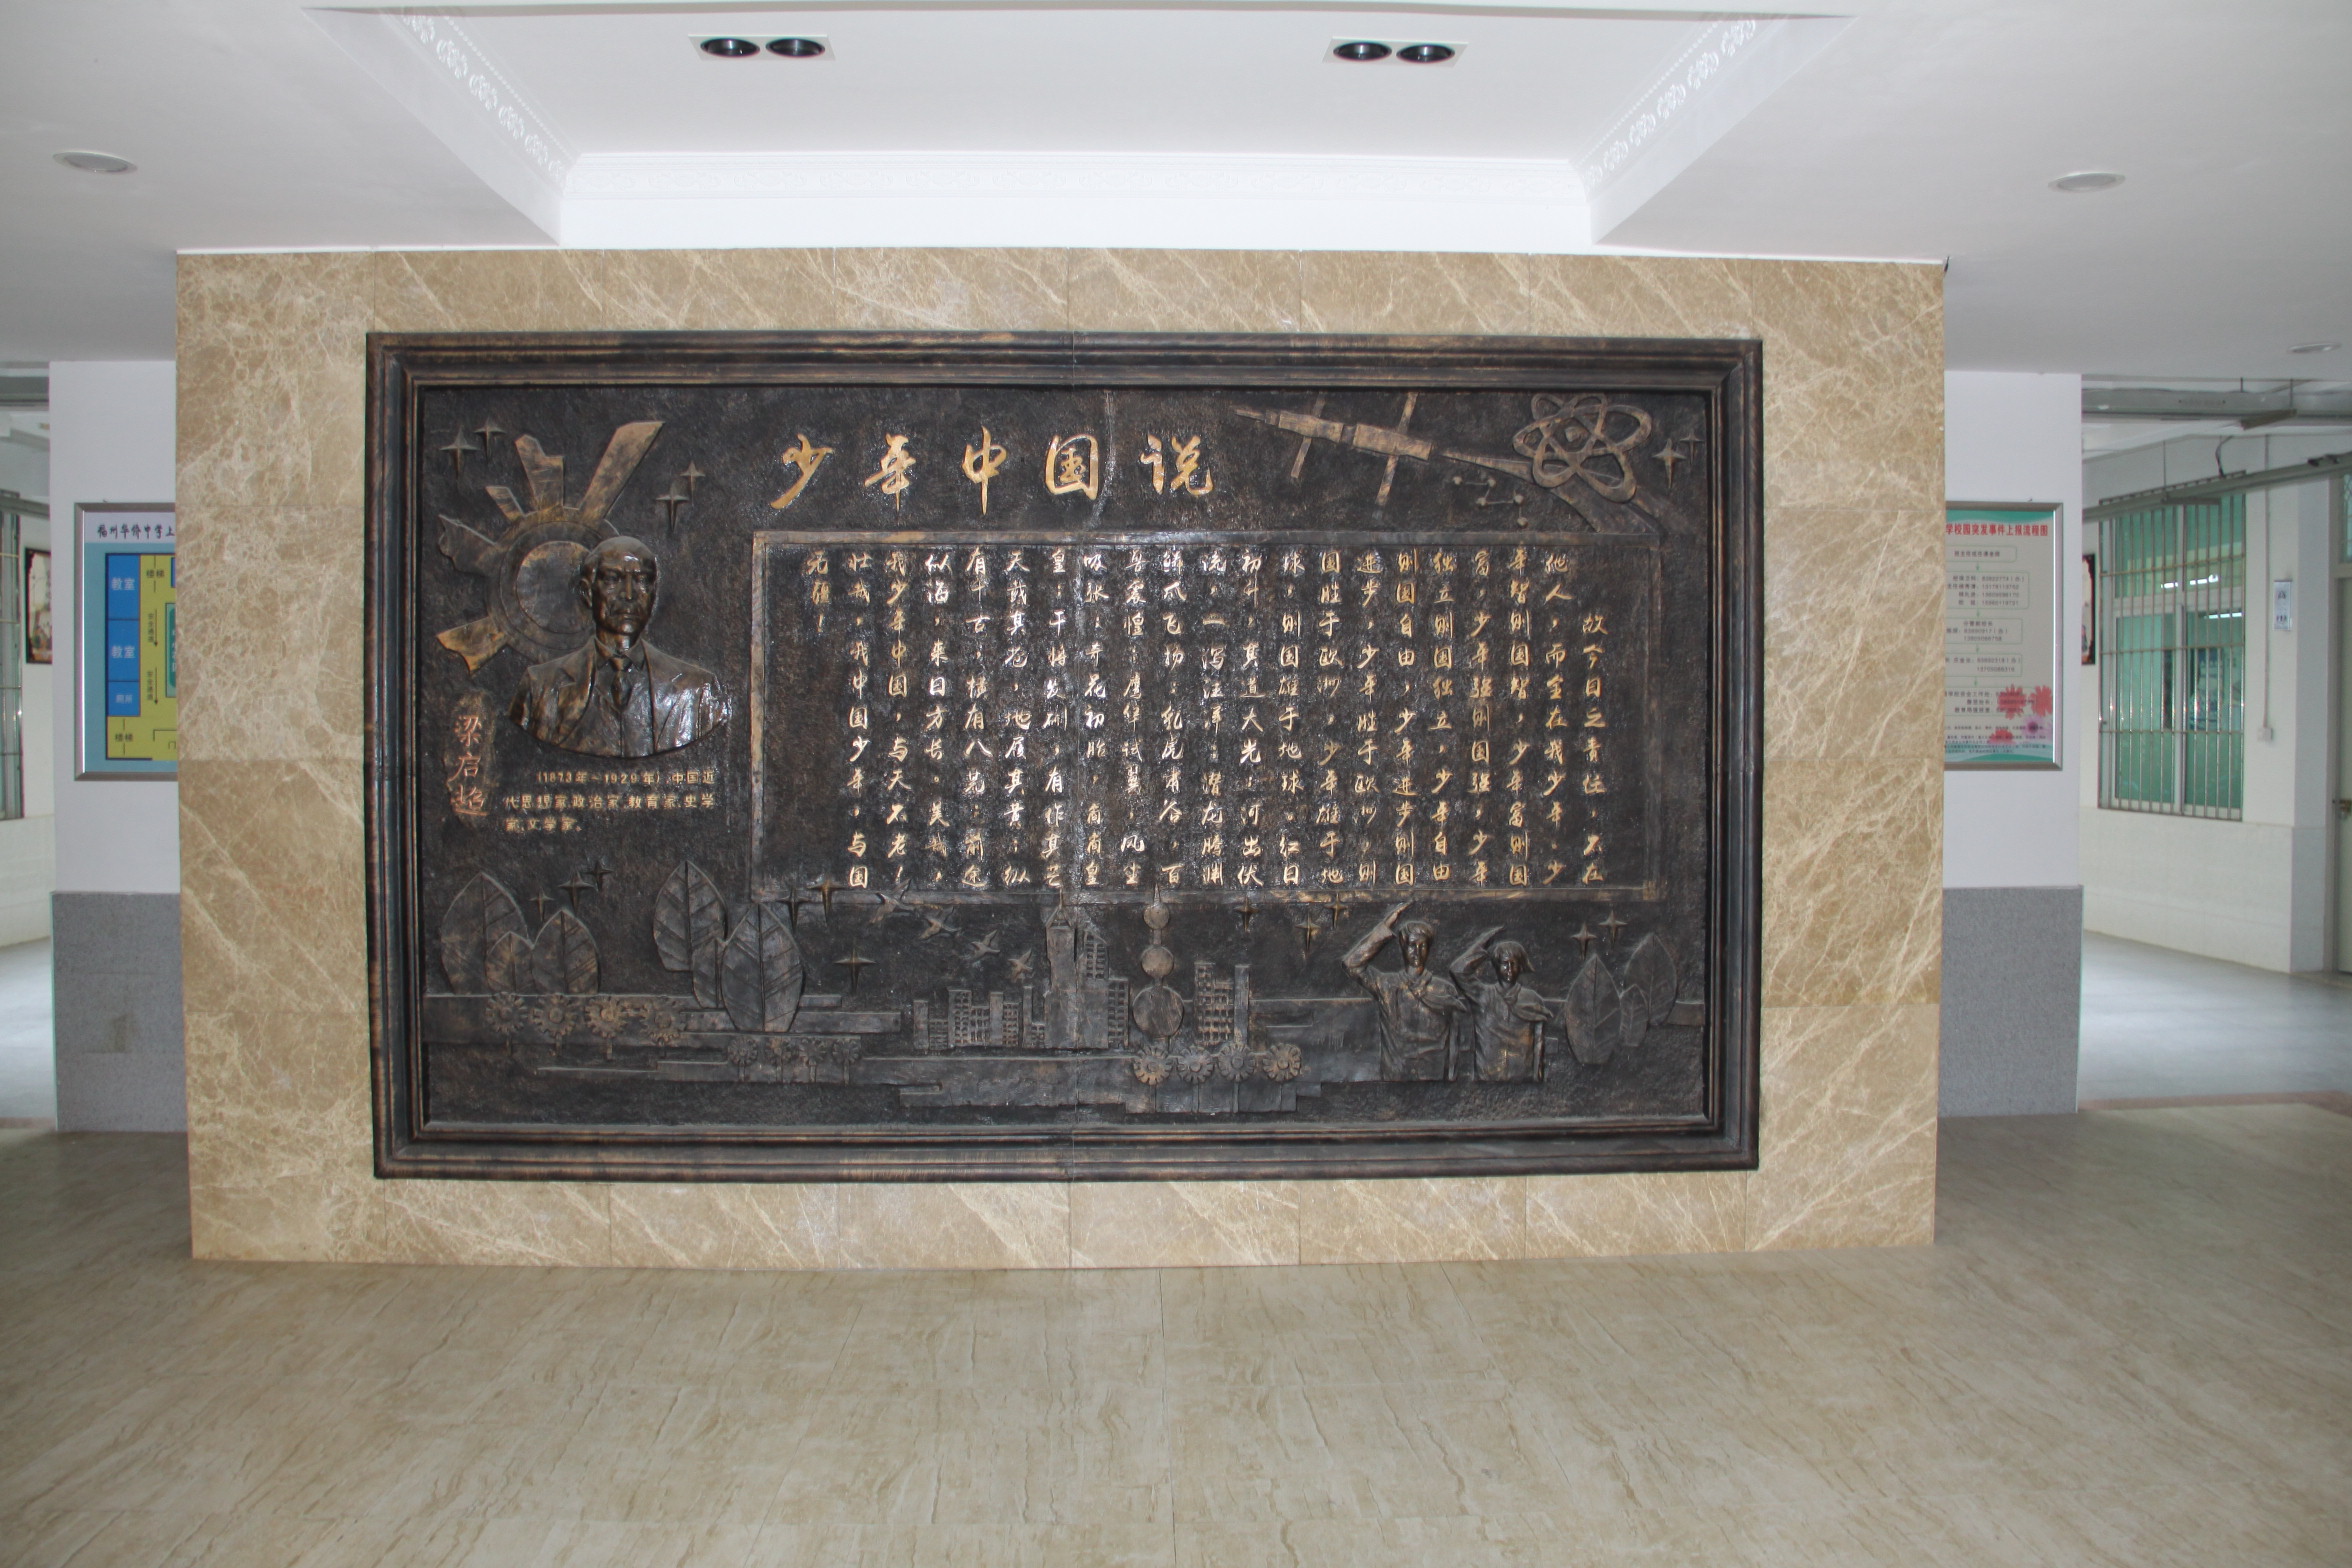 少年中国说
故今日之责任，不在
他人，而全在我少年。少
年智则国智，少年富则国
富，少年强则国强，少年
独立则国独立，少年自由
则国自由，少年进步则国
进步，少年胜于欧洲，则
国胜于欧洲，少年雄于地
球，则国雄于地球。红日
初升，其道大光；河出伏
流，一泻汪洋；潜龙腾渊
鳞爪飞扬；乳虎啸谷，百
兽震惶；鹰隼试翼，风尘
吸张；奇花初胎，矞矞皇
皇；干将发硎，有作其芒
天戴其苍，地履其黄；纵
有千古，横有八荒；前途
似海，来日方长。美哉，
我少年中国，与天不老！
壮哉，我中国少年，与国
无疆！
梁启超
(1873年-1929年)，中国近
代思想家、政治家、教育家、史学
家、文学家。
福州华侨中学上
教室
楼梯
安全通道
教室
安全通道
厕所
楼梯
学校园突发事件上报流程图